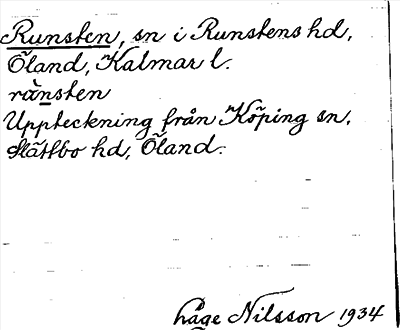 Runsten, sn i Runstens hd,
Öland, Kalmar l.
rànsten
Uppteckning från Köping sn,
Slättbo hd, Öland.
Låge Nilsson 1934